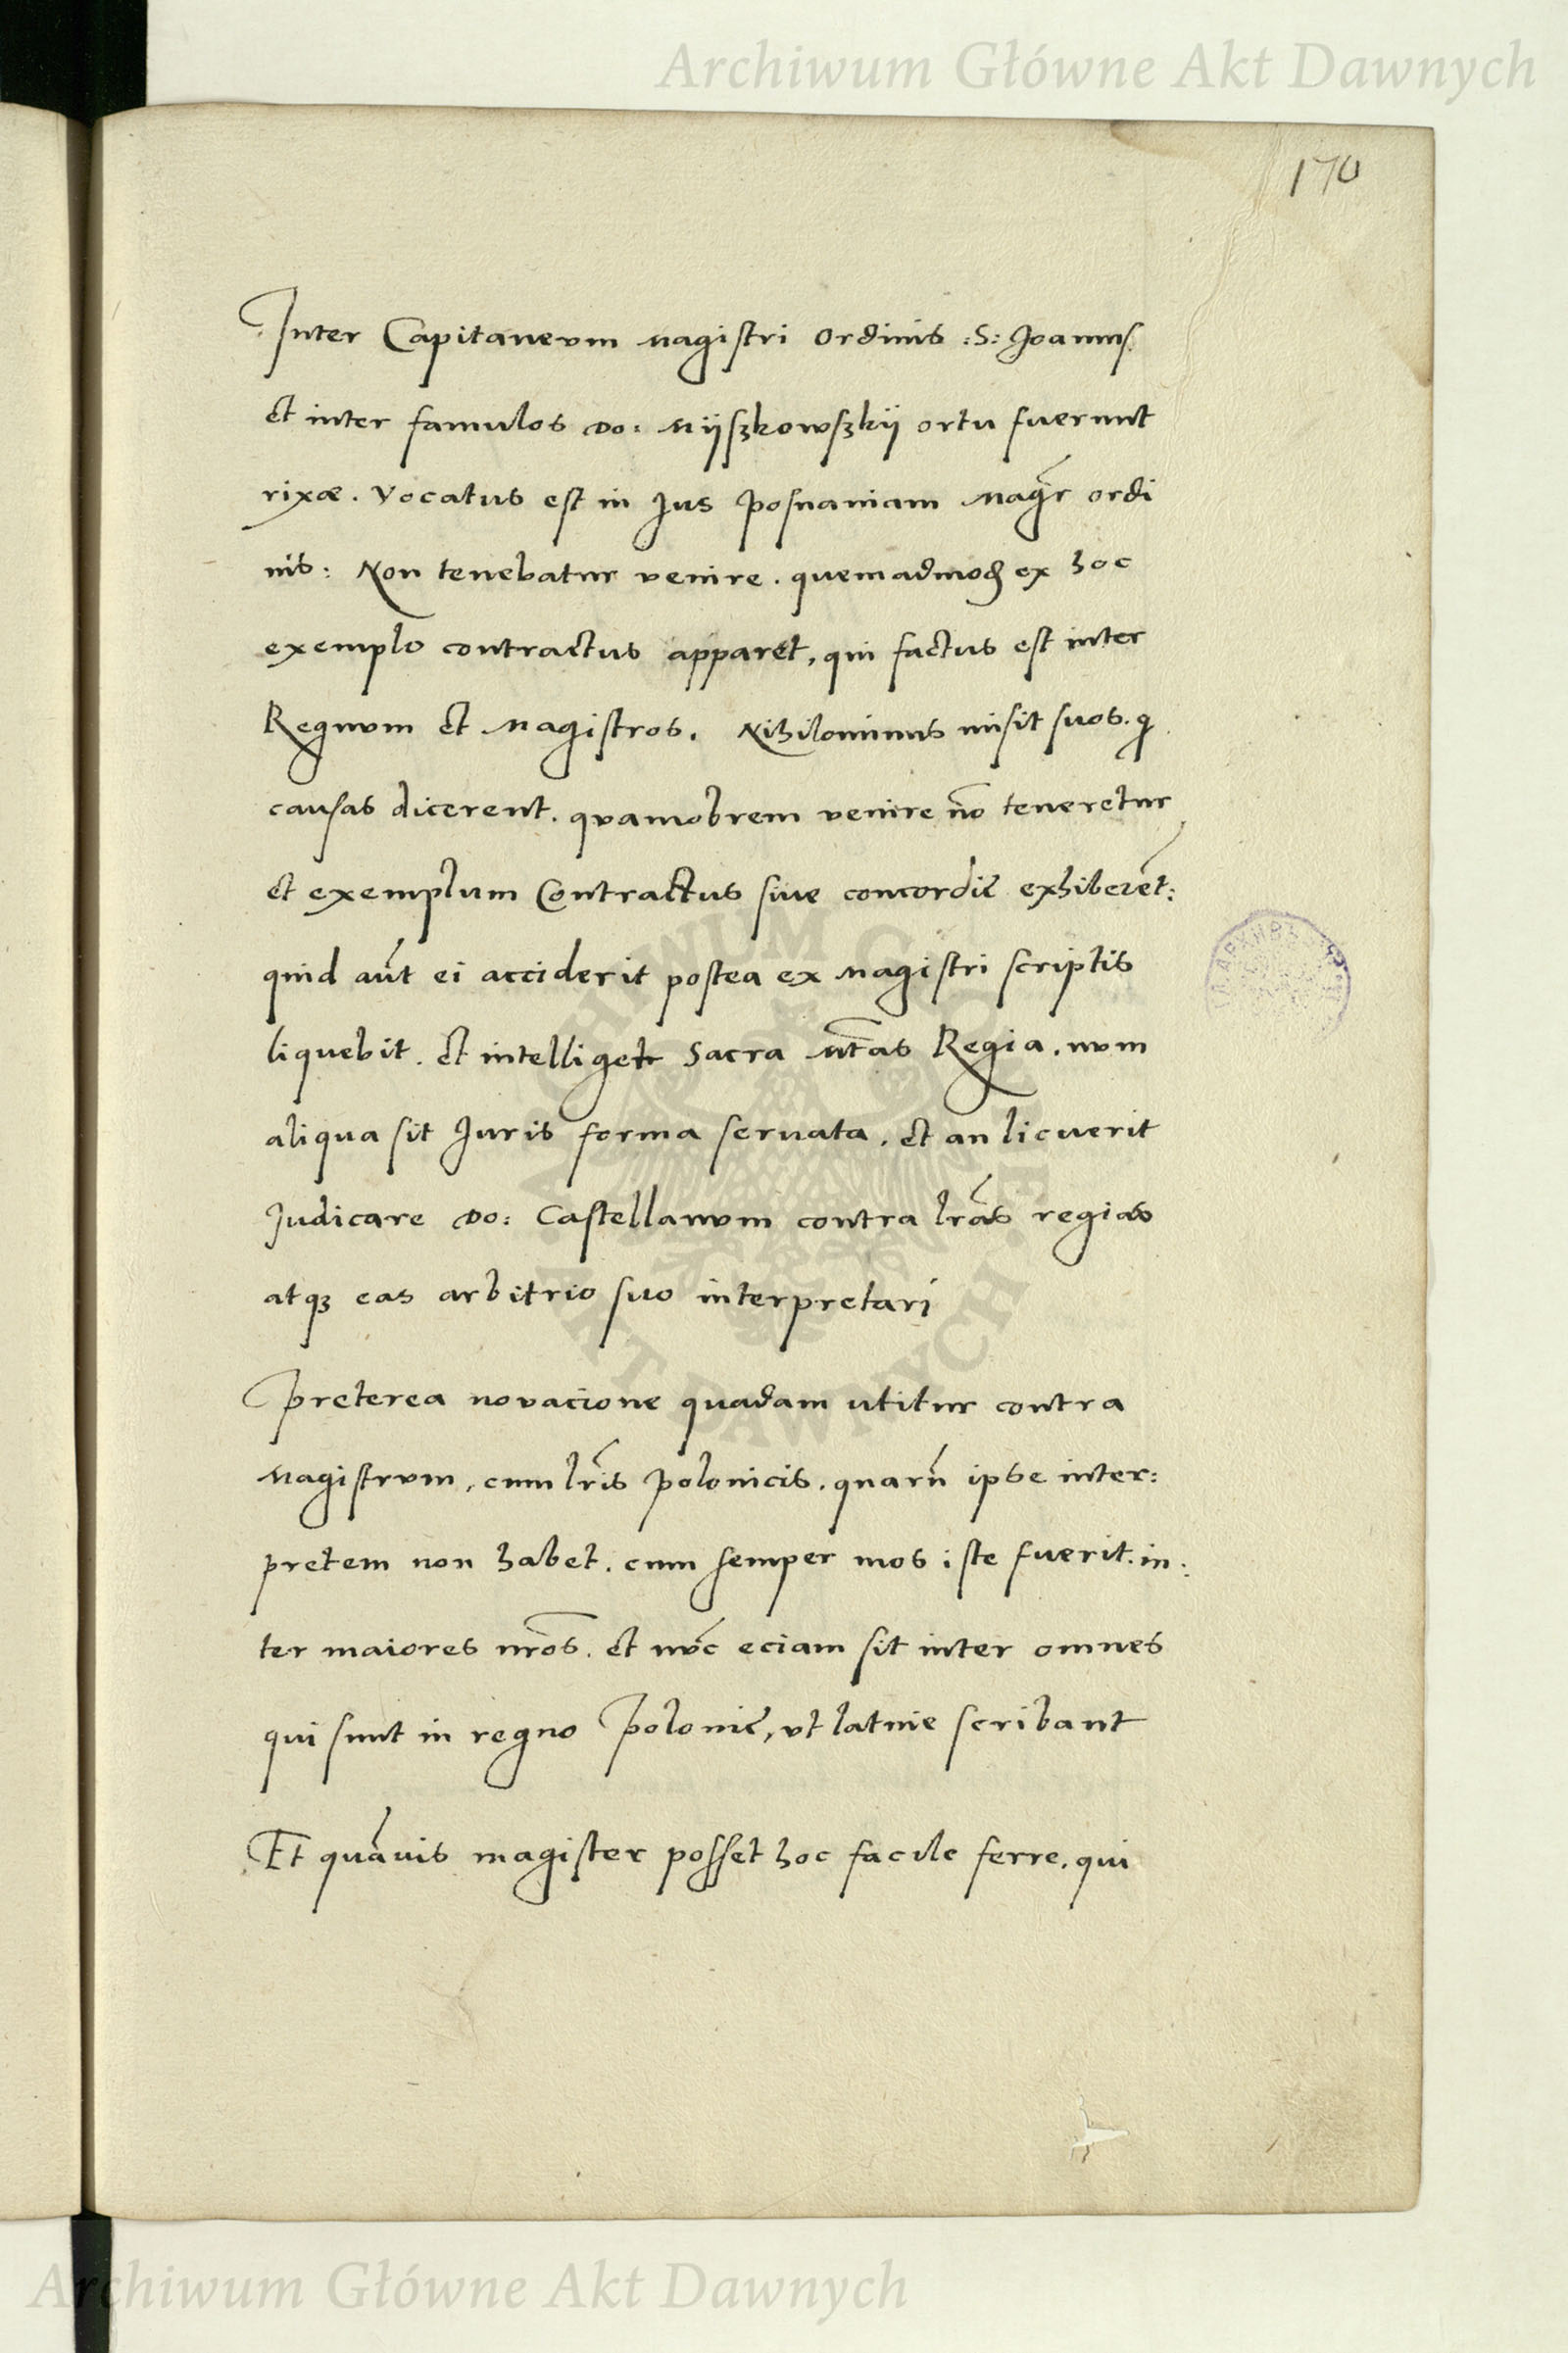 Archiwum Główne Akt Dawnych
170
Inter Capitaneum Magistri Ordinis :S: Joannis
et inter famulos Do: Mÿszkowszkÿ ortu fuerunt
rixæ. Vocatus est in Jus Posnaniam Magr̃ ordi
nis: Non tenebatur venire. quemadmoꝺ ex hoc
exemplo contractus apparet, qui factus est inter
Regnum et Magistros. Nihilominus misit suos. q
causas dicerent. quamobrem venire nõ teneretur
et exemplum Contractus siue concordię exhiberẽt:
quid aũt ei acciderit postea ex Magistri scriptis
liquebit. et intelliget Sacra Mtãs Regia. num
aliqua sit Juris forma seruata. et an licuerit
Judicare Do: Castellanum contra lrãs regias
atqꝫ eas arbitrio suo interpretari
Preterea novacione quadam utitur contra
Magistrum, cum lrĩs Polonicis. quarũ ipse inter:
pretem non habet. cum semper mos iste fuerit. in:
ter maiores nrõs. et nũc eciam sit inter omnes
qui sunt in regno Polonię, ut latine scribant
Et quãuis magister posset hoc facile ferre. qui
ARCHIWUM GŁÓWNE AKT DAWNYCH
Archiwum Główne Akt Dawnych